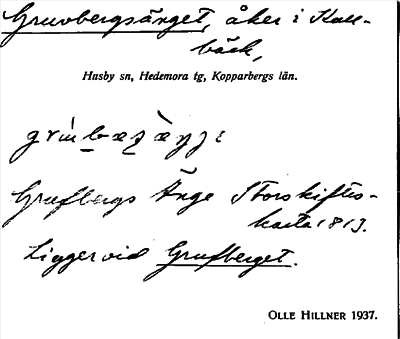 Gruvbergsänget, åker i Kall-
bäck,
Husby sn, Hedemora tg, Kopparbergs län.
Grufbergs Änge Storskiftes-
karta 1813.
Ligger vid Grufberget.
OLLE HILLNER 1937.